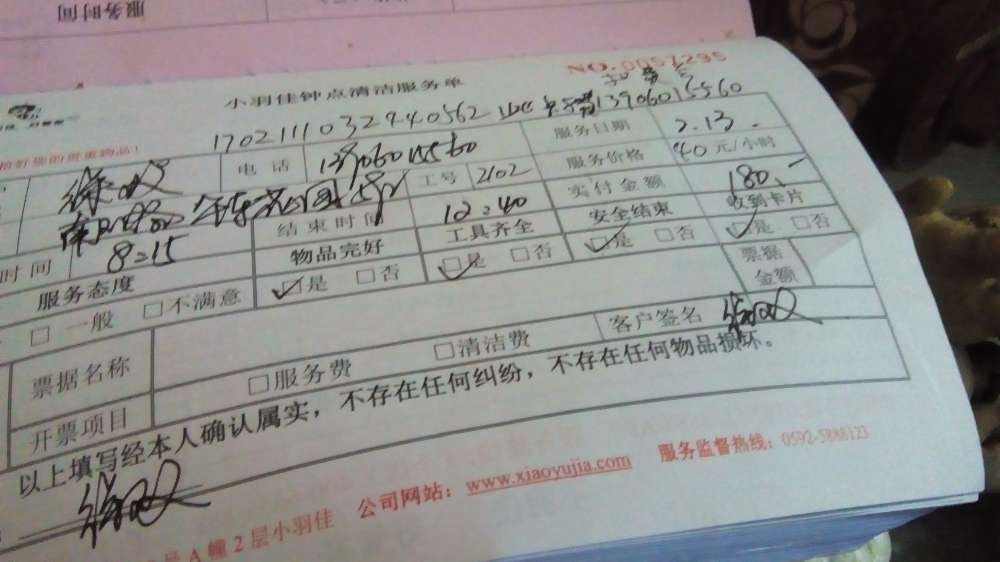 服务时间
NO.0057295
小羽佳钟点清洁服务单
1702111032440562 13906015560
电话 13906015560 服务日期 2.13.
工号 2102 服务价格 40元/小时
结束时间 12:40 实付金额 180.-
时间 8:15 物品完好 工具齐全 安全结束 收到卡片
服务态度 是 否 是 否 是 否 是 否
一般 不满意 票据金额
票据名称 客户签名
开票项目 服务费 清洁费
以上填写经本人确认属实，不存在任何纠纷，不存在任何物品损坏。
公司网站：www.xiaoyujia.com 服务监督热线：0592-5888123
号A幢2层小羽佳